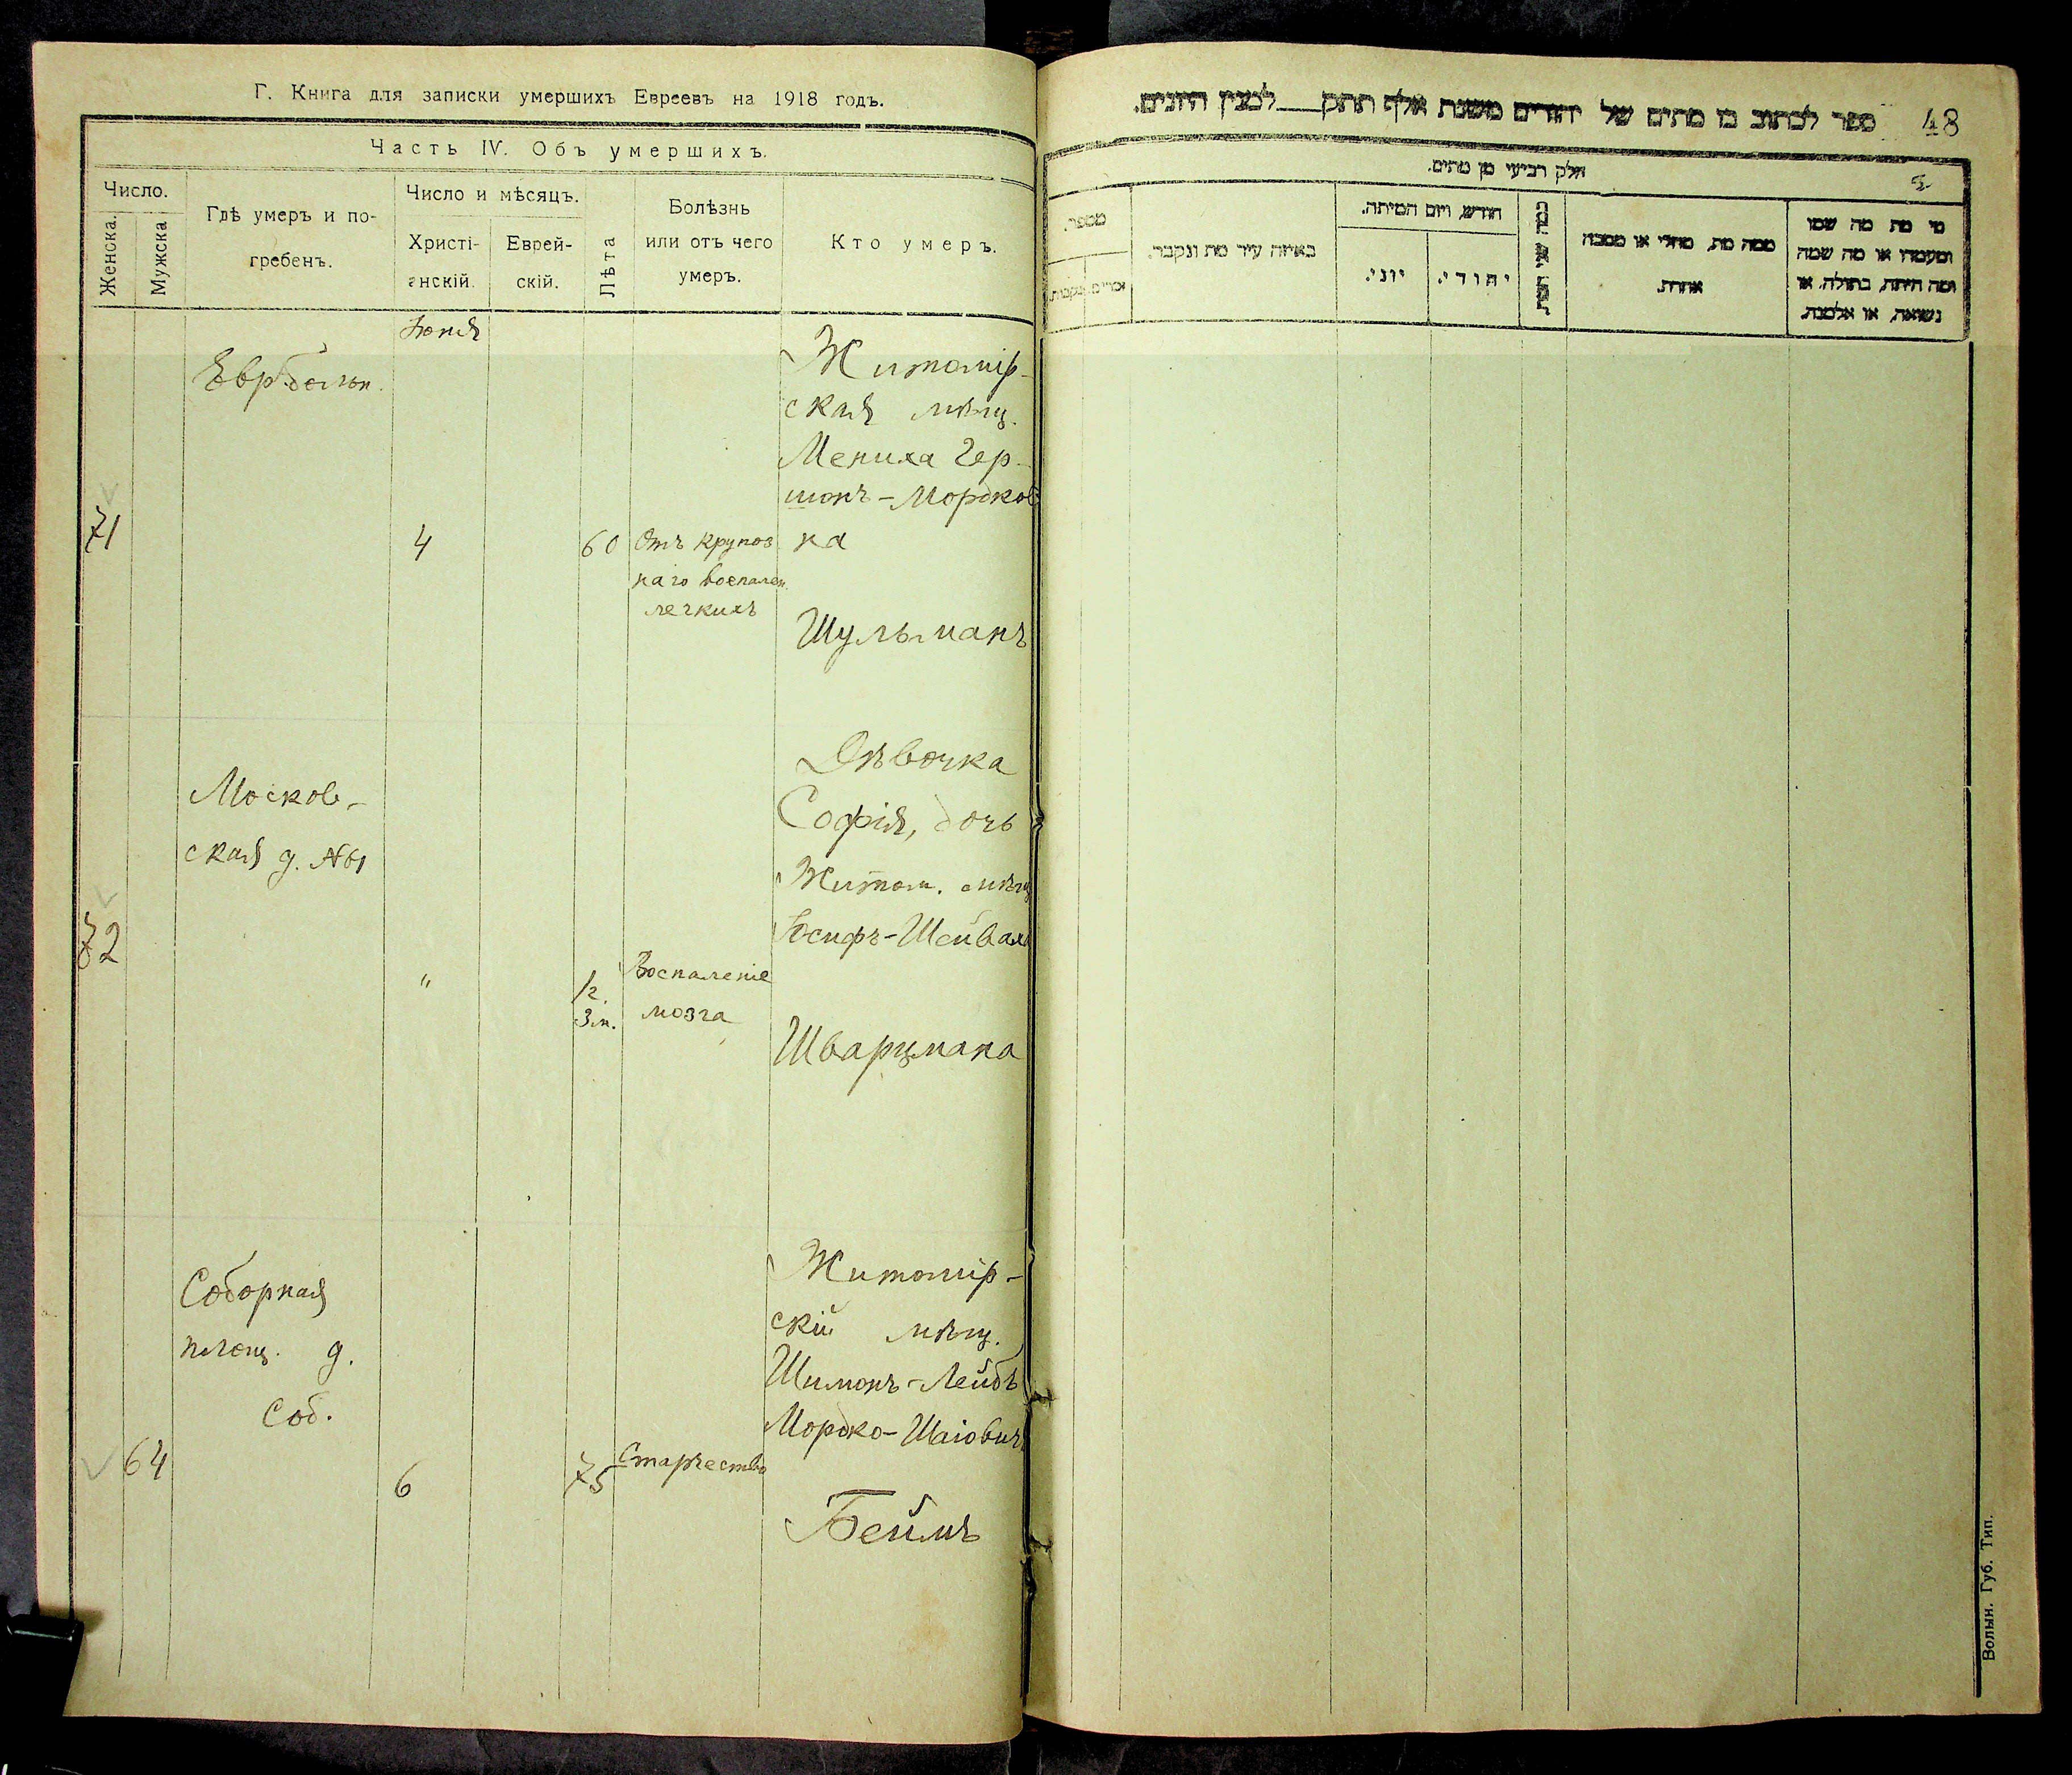 Г. Книга для записки умершихъ Евреевъ на 1918 годъ.
Часть IV. Объ умершихъ.
Число.
Женска.
Мужска
Гдѣ умеръ и по-
гребенъ.
Число и мѣсяцъ.
Христі-
анскій.
Еврей-
скій.
Лѣта
Болѣзнь
или отъ чего
умеръ.
Кто умеръ.
Іюня
71
Евр. больн.
4
60
Отъ крупоз
наго воспален.
легкихъ
Житомір-
ская мѣщ.
Мениха Гер-
шонъ-Мордков
на
Шульманъ
72
Москов-
ская д. №1
"
1 г.
3 м.
Воспаленіе
мозга
Дѣвочка
Софія, дочь
Житом. мѣщ
Іосифъ-Шейваха
Шварцмана
64
Соборная
площ. д.
Соб.
6
75
Старчество
Житомір-
скій мѣщ.
Шимонъ-Лейбъ
Мордко-Шаіовичъ
Беймъ
48
ספר לכתוב בו מתים של יהודים משנת אלף תתק___למנין היונים.
חלק רביעי מן מתים.
מי מת מה שמו
ומעמדו או מה שמה
ומה היתה, בתולה, או
נשואה, או אלמנה.
ממה מת, מחלי או מסבה
אחרת.
כמה שני המת.
חודש, ויום המיתה.
יהודי.
יוני.
באיזה עיר מת ונקבר.
מספר.
זכרים
נקבות.
Волын. Губ. Тип.